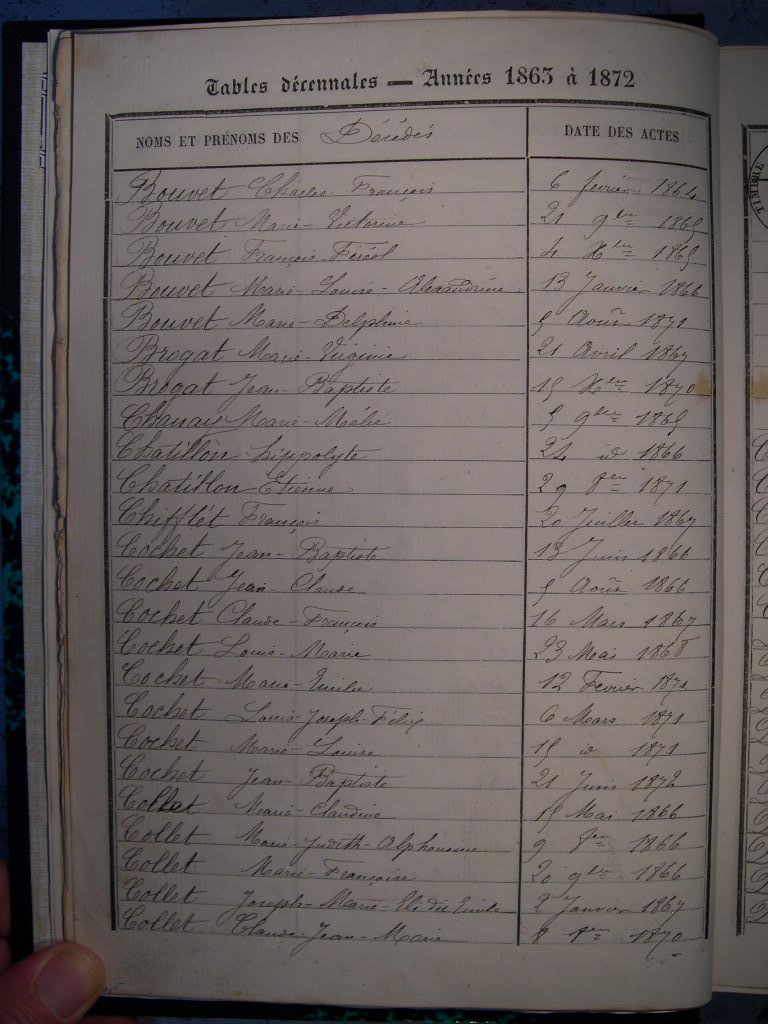 Tables décennales — Années 1863 à 1872
NOMS ET PRÉNOMS DES Décédés DATE DES ACTES
Bouvet Charles François 6 février 1864
Bouvet Marie-Victorine 21 9bre 1865
Bouvet François Féréol 4 Xbre 1865
Bouvet Marie-Louise-Alexandrine 13 Janvier 1866
Bouvet Marie-Delphine 5 Août 1871
Brogat Marie-Virginie 21 Avril 1867
Brogat Jean-Baptiste 15 Xbre 1870
Marie-Mélie 5 9bre 1865
Chatillon hippolyte 24 id 1866
Chatillon Etienne 29 1871
Chifflet François 20 Juillet 1867
Cochet Jean-Baptiste 13 Juin 1866
Cochet Jean-Claude 5 Août 1866
Cochet Claude-François 16 Mars 1867
Cochet Louis-Marie 23 Mai 1868
Cochet Marie-Emilie 12 Fevrier 1871
Cochet Louis-Joseph-Félix 6 Mars 1871
Cochet Marie-Louise 15 id 1871
Cochet Jean-Baptiste 21 Juin 1872
Collet Marie-Claudine 15 Mai 1866
Collet Marie-Judith-Alphonsine 9 1866
Collet Marie-Françoise 20 9bre 1866
Collet Joseph-Marie-Eli dit Emile 2 Janvier 1867
Collet Claude-Jean-Marie 8 1870
TIMBRE